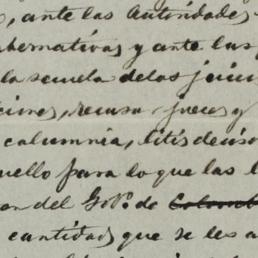 , ante las Autoridades
ubernativas y ante las
la secuela de los juici
ciones, recusa jueces y
calumnia, litis deciso
uello para lo que las l
on del Gob.º de Colomb
cantidad que se les a